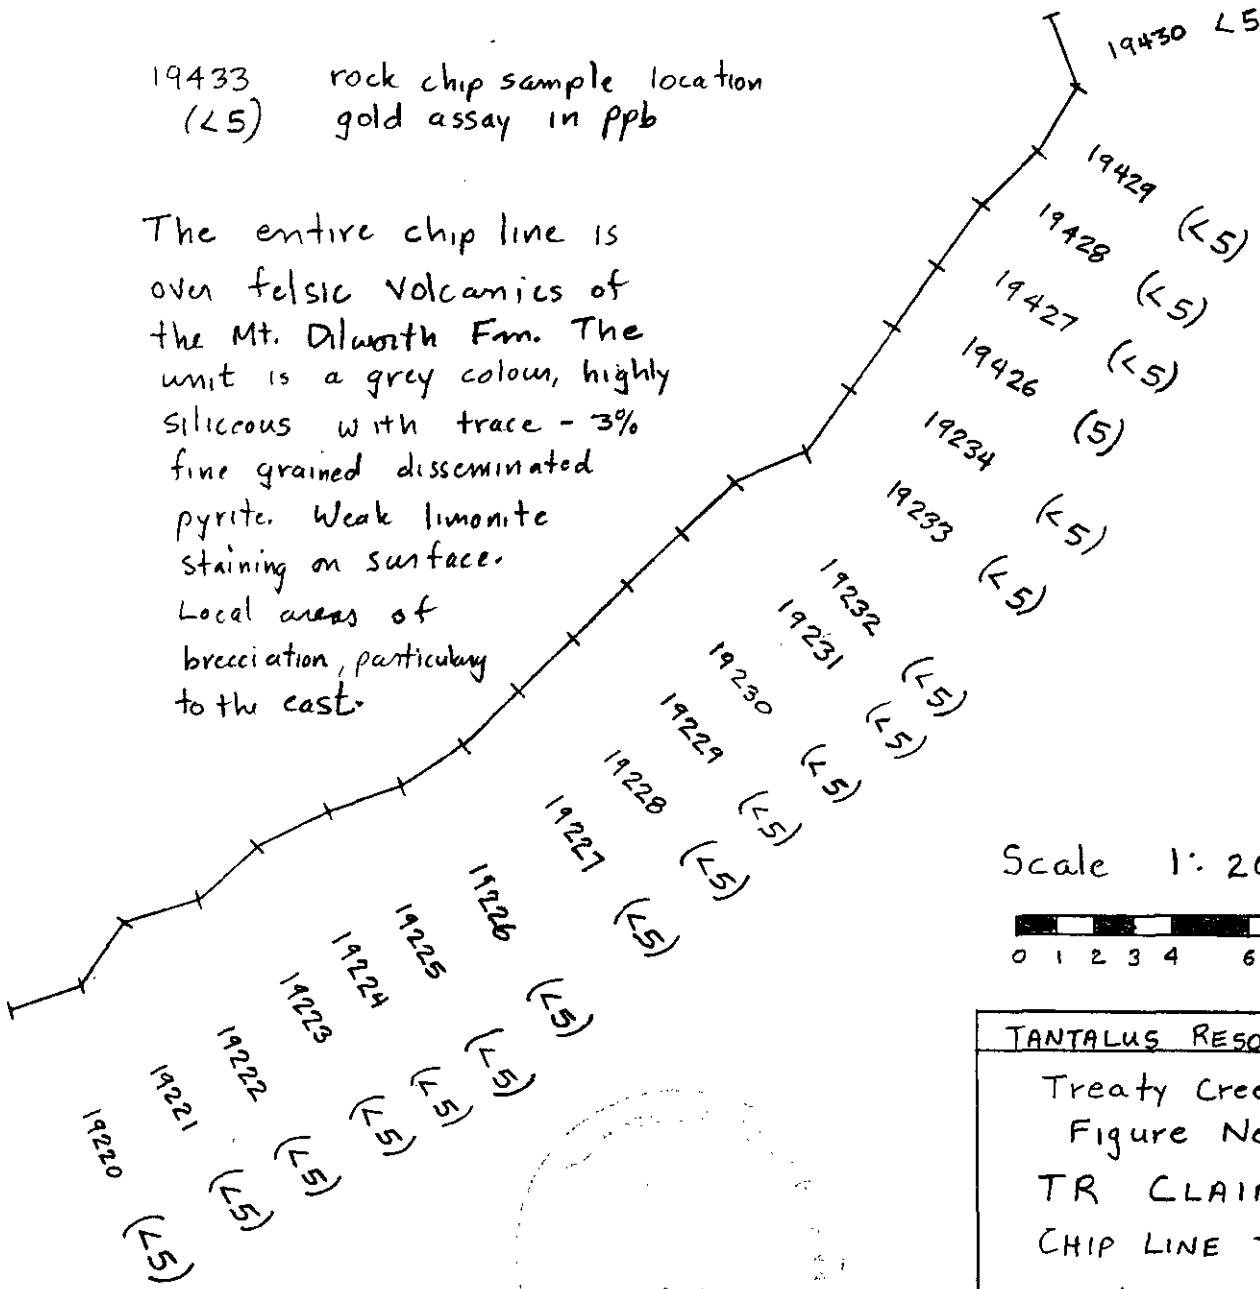 19430 <5
19433 rock chip sample location
(<5) gold assay in ppb
The entire chip line is
over felsic volcanics of
the Mt. Dilworth Fm. The
unit is a grey colour, highly
siliceous with trace - 3%
fine grained disseminated
pyrite. Weak limonite
staining on surface.
Local areas of
brecciation, particulary
to the east.
19429 (<5)
19428 (<5)
19427 (<5)
19426 (5)
19234 (<5)
19233 (<5)
19232 (<5)
19231 (<5)
19230 (<5)
19229 (<5)
19228 (<5)
19227 (<5)
19226 (<5)
19225 (<5)
19224 (<5)
19223 (<5)
19222 (<5)
19221 (<5)
19220 (<5)
Scale 1: 20
0 1 2 3 4 6
TANTALUS RESO
Treaty Cree
Figure No
TR CLAI
CHIP LINE